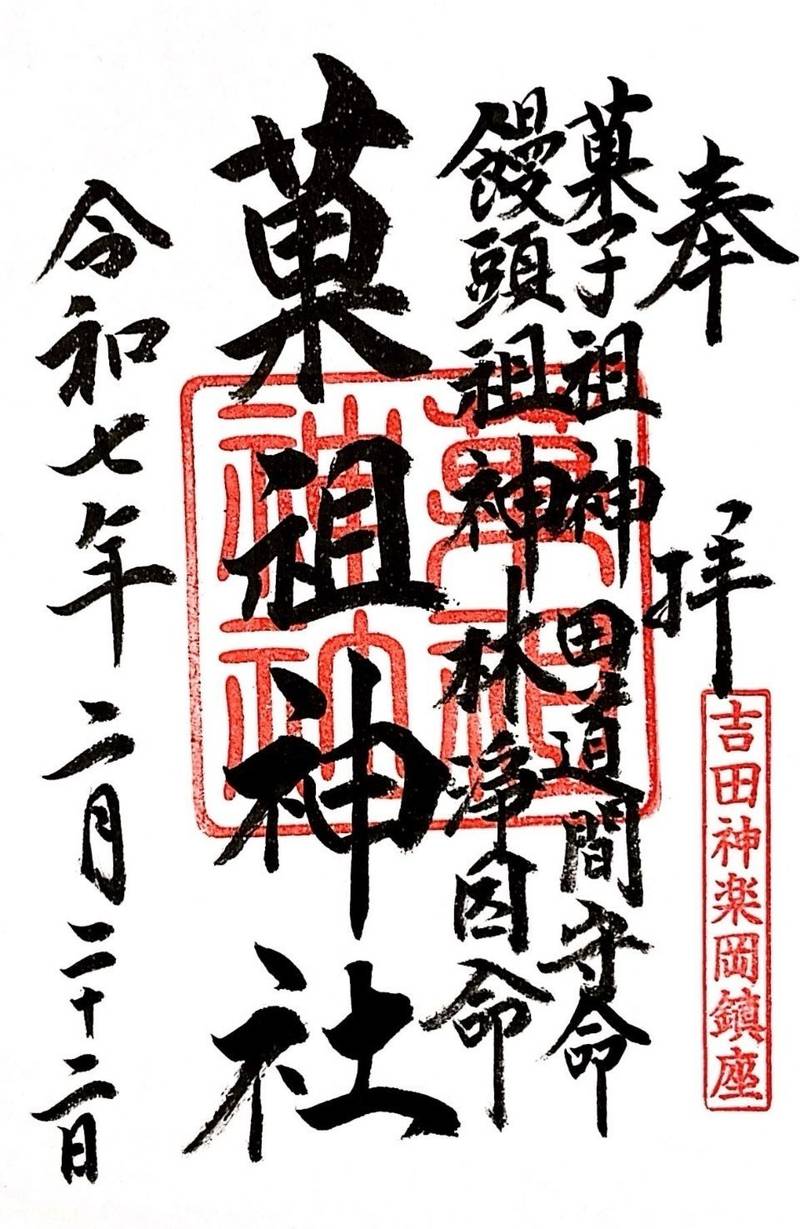 奉拝
吉田神楽岡鎮座
菓子祖神 田道間守命
饅頭祖神 林浄因命
菓祖神社
菓祖神社
令和七年二月二十二日